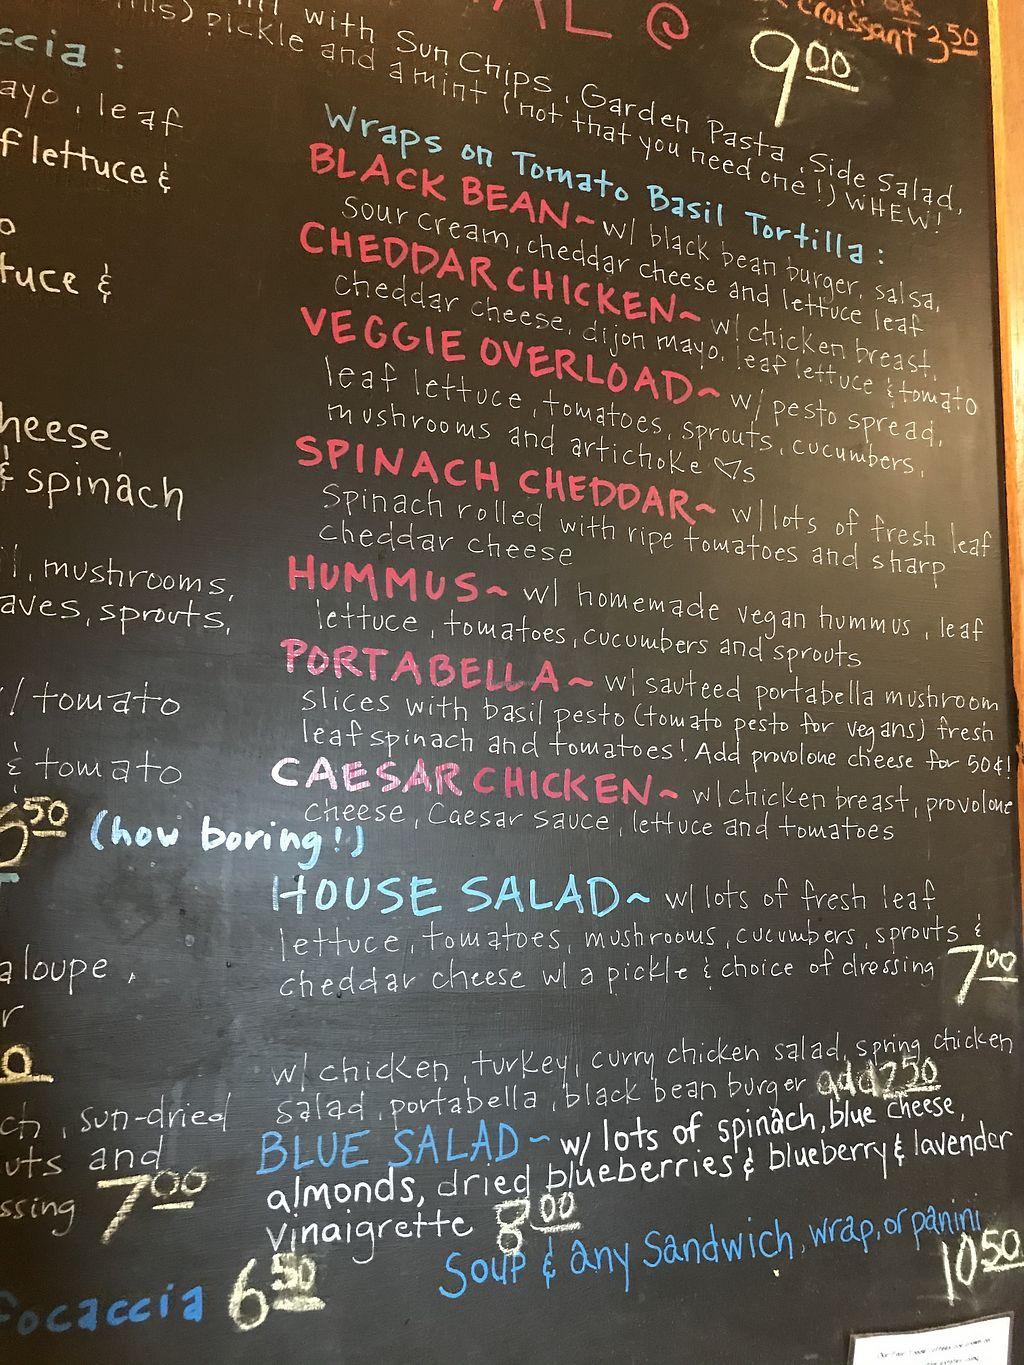 AL @
OR
croissant 3.50
with Sun Chips, Garden Pasta, Side Salad,
pickle and a mint (not that you need one!) WHEW!
9.00
Wraps on Tomato Basil Tortilla:
BLACK BEAN~ w/ black bean burger, salsa,
sour cream, cheddar cheese and lettuce leaf
CHEDDAR CHICKEN~ w/ chicken breast,
cheddar cheese, dijon mayo, leaf lettuce & tomato
VEGGIE OVERLOAD~ w/ pesto spread,
leaf lettuce, tomatoes, sprouts, cucumbers,
mushrooms and artichoke ♡s
SPINACH CHEDDAR~ w/ lots of fresh leaf
Spinach rolled with ripe tomatoes and sharp
cheddar cheese
HUMMUS~ w/ homemade vegan hummus, leaf
lettuce, tomatoes, cucumbers and sprouts
PORTABELLA~ w/ sauteed portabella mushroom
slices with basil pesto (tomato pesto for vegans) fresh
leaf spinach and tomatoes! Add provolone cheese for 50¢!
CAESAR CHICKEN~ w/ chicken breast, provolone
cheese, Caesar sauce, lettuce and tomatoes
HOUSE SALAD~ w/ lots of fresh leaf
lettuce, tomatoes, mushrooms, cucumbers, sprouts &
cheddar cheese w/ a pickle & choice of dressing 7.00
w/ chicken, turkey, curry chicken salad, spring chicken
salad, portabella, black bean burger add 2.50
BLUE SALAD~ w/ lots of spinach, blue cheese,
almonds, dried blueberries & blueberry & lavender
vinaigrette 8.00
Soup & any Sandwich, wrap, or panini
10.50
ccia:
ayo, leaf
f lettuce &
o
tuce &
heese,
& spinach
il, mushrooms,
aves, sprouts,
w/ tomato
& tomato
6.50 (how boring!)
aloupe,
r
ch, sun-dried
uts and
ssing 7.00
focaccia 6.50